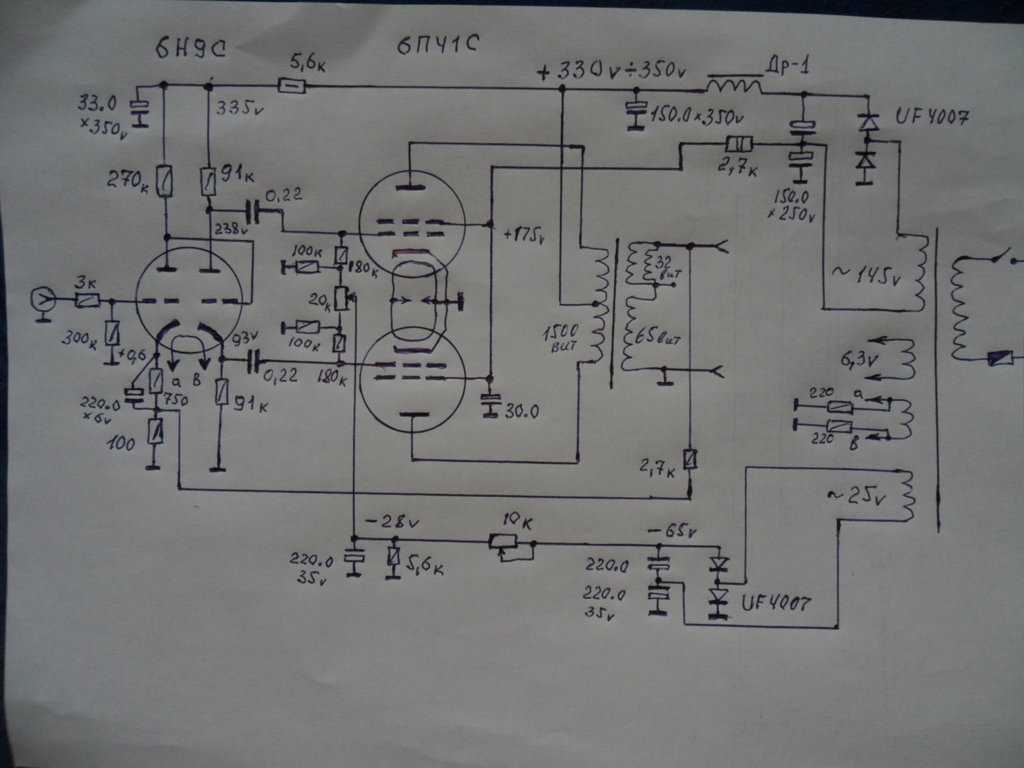 6Н9С
6П41С
5,6к
+330v÷350v
Др-1
33.0
×350v
335v
150.0×350v
UF4007
2,7к
150.0
×250v
270к
91к
0,22
238v
+175v
100к
180к
32
вит
~145v
3к
20к
300к
100к
1500
вит
65вит
+0,6
93v
0,22
180к
6,3v
а
в
750
220.0
×6v
91к
30.0
220
а
220
в
100
2,7к
~25v
-28v
10к
-65v
220.0
35v
5,6к
220.0
220.0
35v
UF4007